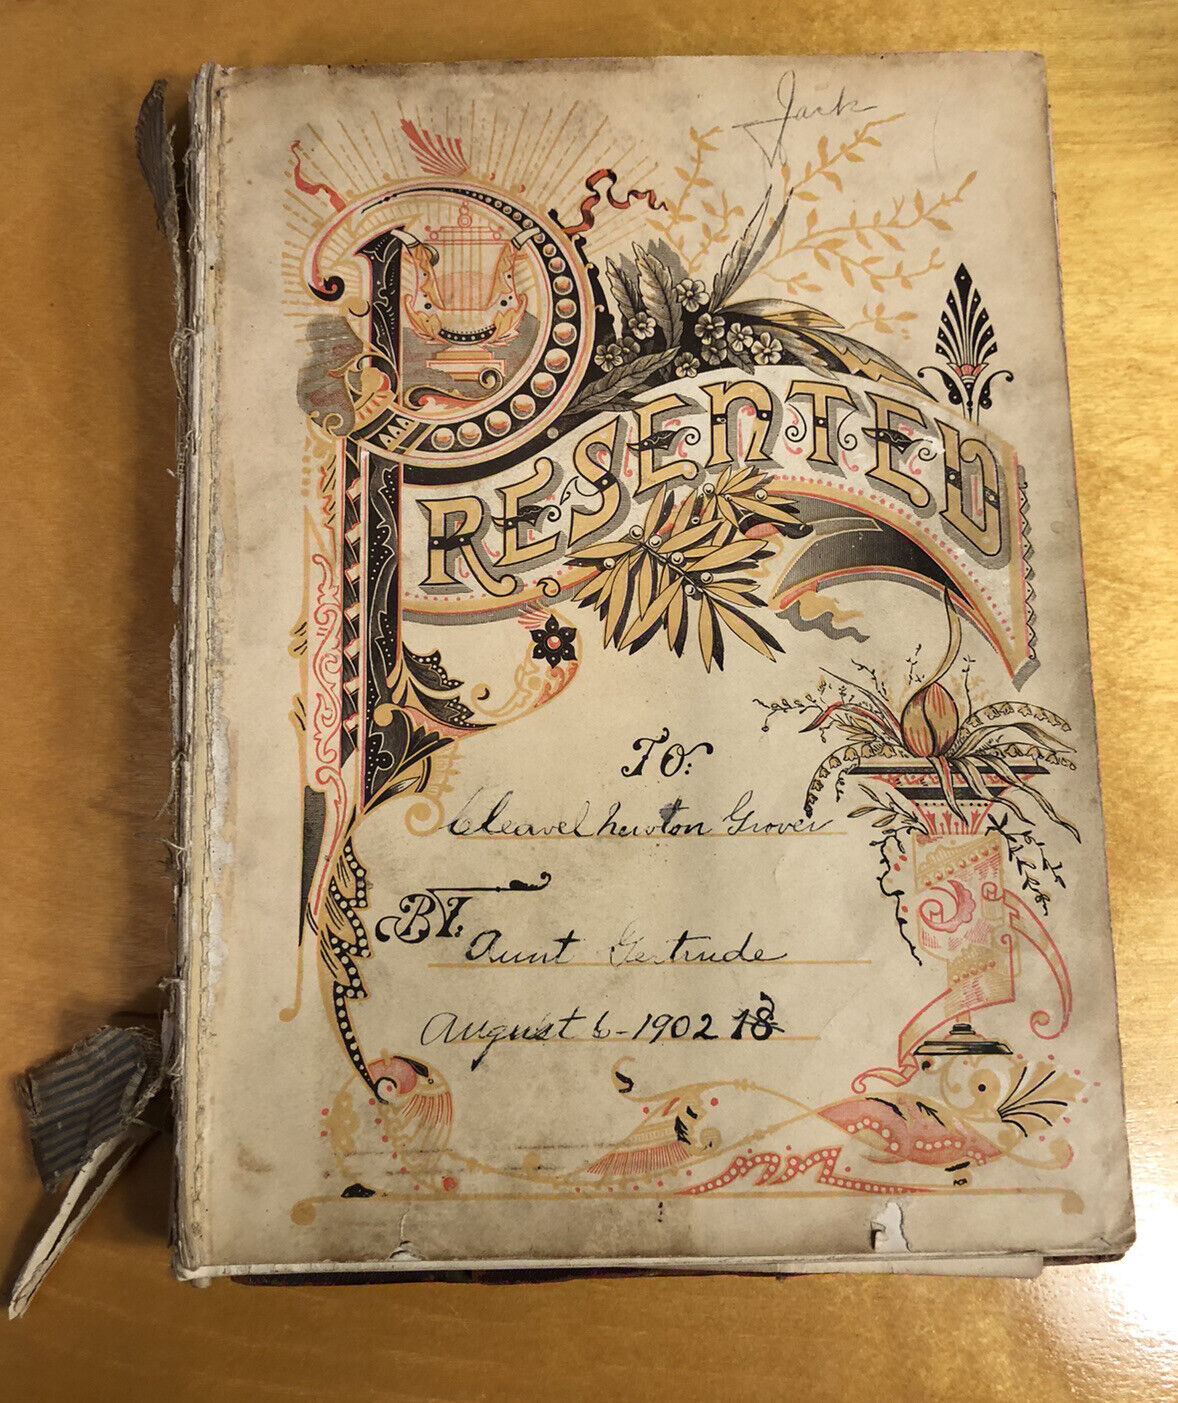 Jack
PRESENTED
TO:
Cleavel Newton Grover
BY:
Aunt Gertrude
August 6-1902 18